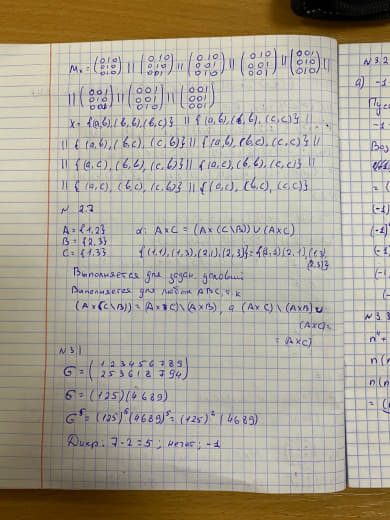 Mx = (010 010 010) || (010 010 001) || (010 001 010) || (010 001 001) || (001 010 010) ||
|| (001 010 001) || (001 001 010) || (001 001 001)
X = {(a,b),(b,b),(b,c)} ||
|| {(a,b),(b,c),(c,b)} || {(a,b),(b,c),(c,c)} ||
|| {(a,c),(b,b),(c,b)} || {(a,c),(b,b),(c,c)} ||
|| {(a,c),(b,c),(c,b)} || {(a,c),(b,c),(c,c)}
N 2.7
A = {1,2} a: A×C = (A×(C\B)) ∪ (A×C)
B = {2,3}
C = {1,3} {(1,1),(1,3),(2,1),(2,3)}
(2,3)}
Выполняется для задан. условий
Выполняется для любых ABC, т.к
(A×(C\B)) = (A×C)\(A×B), а (A×C)\(A×B) ∪
(A×C) =
= (A×C)
N 3.1
G = (1 2 3 4 5 6 7 8 9
2 5 3 6 1 8 7 9 4)
G = (125)(4689)
G⁵ = (125)⁵(4689)⁵ = (125)²(4689)
Дикр: 7-2=5; нечет; -1
N 3.2
а) -1
(-1)
(-1)
(-1)
N 3.3
n(n
n(n